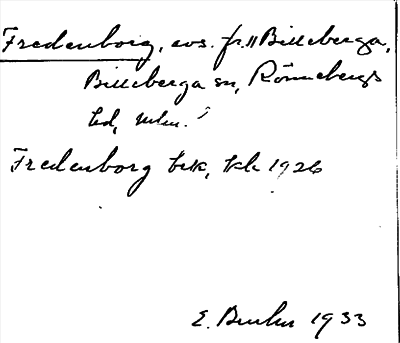 Fredenborg, avs. fr. Billeberga,
Billeberga sn, Rönnebergs
hd, Mlm.
Fredenborg trk, kk 1926
E. 1933